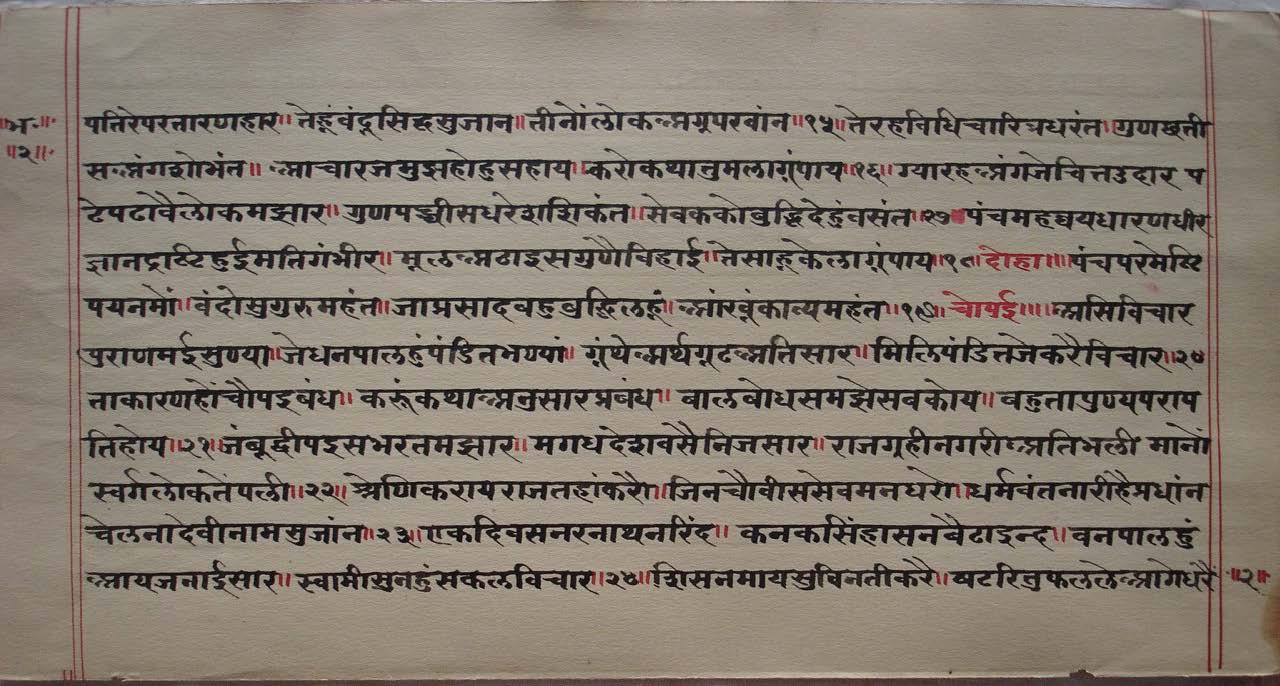 भ॰
॥२॥
पतिरेपरतारणहार॥ तेहूंवंदूसिद्धसुजान॥ तीनोंलोकअग्रपरवांन॥१५॥ तेरहविधिचारित्रधरंत॥ गुणछत्ती
सअंगशोभंत॥ आचारजमुझहोहुसहाय॥ करोकथानुमलागूंपाय॥१६॥ ग्यारहअंगजेचित्तउदार प
ढेपढावैलोकमझार॥ गुणपच्चीसधरेशशिकंत॥ सेवककोबुद्धिदेहुंवसंत॥१७॥ पंचमहाव्रयधारणधीर
ज्ञानद्रष्टिहुईमतिगंभीर॥ मूलअठाइसगुणैविहाई॥ तेसाहूकेलागूंपाय॥१८॥ दोहा॥ पंचपरमेष्टि
पयनमों॥ वंदोसुगुरुमहंत॥ जाप्रसादबहुबुद्धिलहूं॥ आंखूंकाव्यमहंत॥१९॥ चोपई॥ असिविचार
पुराणमईसुण्या॥ जेधनपालहुंपंडितभण्यां॥ ग्रंथेअर्थगूढअतिसार॥ मिलिपंडितजेकरैविचार॥२०
ताकारणहोंचौपइबंध॥ करूंकथाअनुसारप्रबंध॥ बालबोधसमझेसवकोय॥ बहुतापुण्यपराप
तिहोय॥२१॥ जंबूद्वीपइसभरतमझार॥ मगधदेशवसैनिजसार॥ राजगृहीनगरीअतिभली मानों
स्वर्गलोकतेंपली॥२२॥ श्रेणिकरायराजतहांकरै॥ जिनचौवीससेवमनधरो॥ धर्मवंतनारीहैप्रधांन
चेलनादेवीनामसुजांन॥२३॥ एकदिवसनरनाथनरिंद॥ कनकसिंहासनबैठाइन्द॥ वनपालहुं
आयजनाईसार॥ स्वामीसुनहुंसकलविचार॥२४॥ शिसनमायसुविनतीकरै॥ षटरितुफलले आगेधरैं
॥२॥